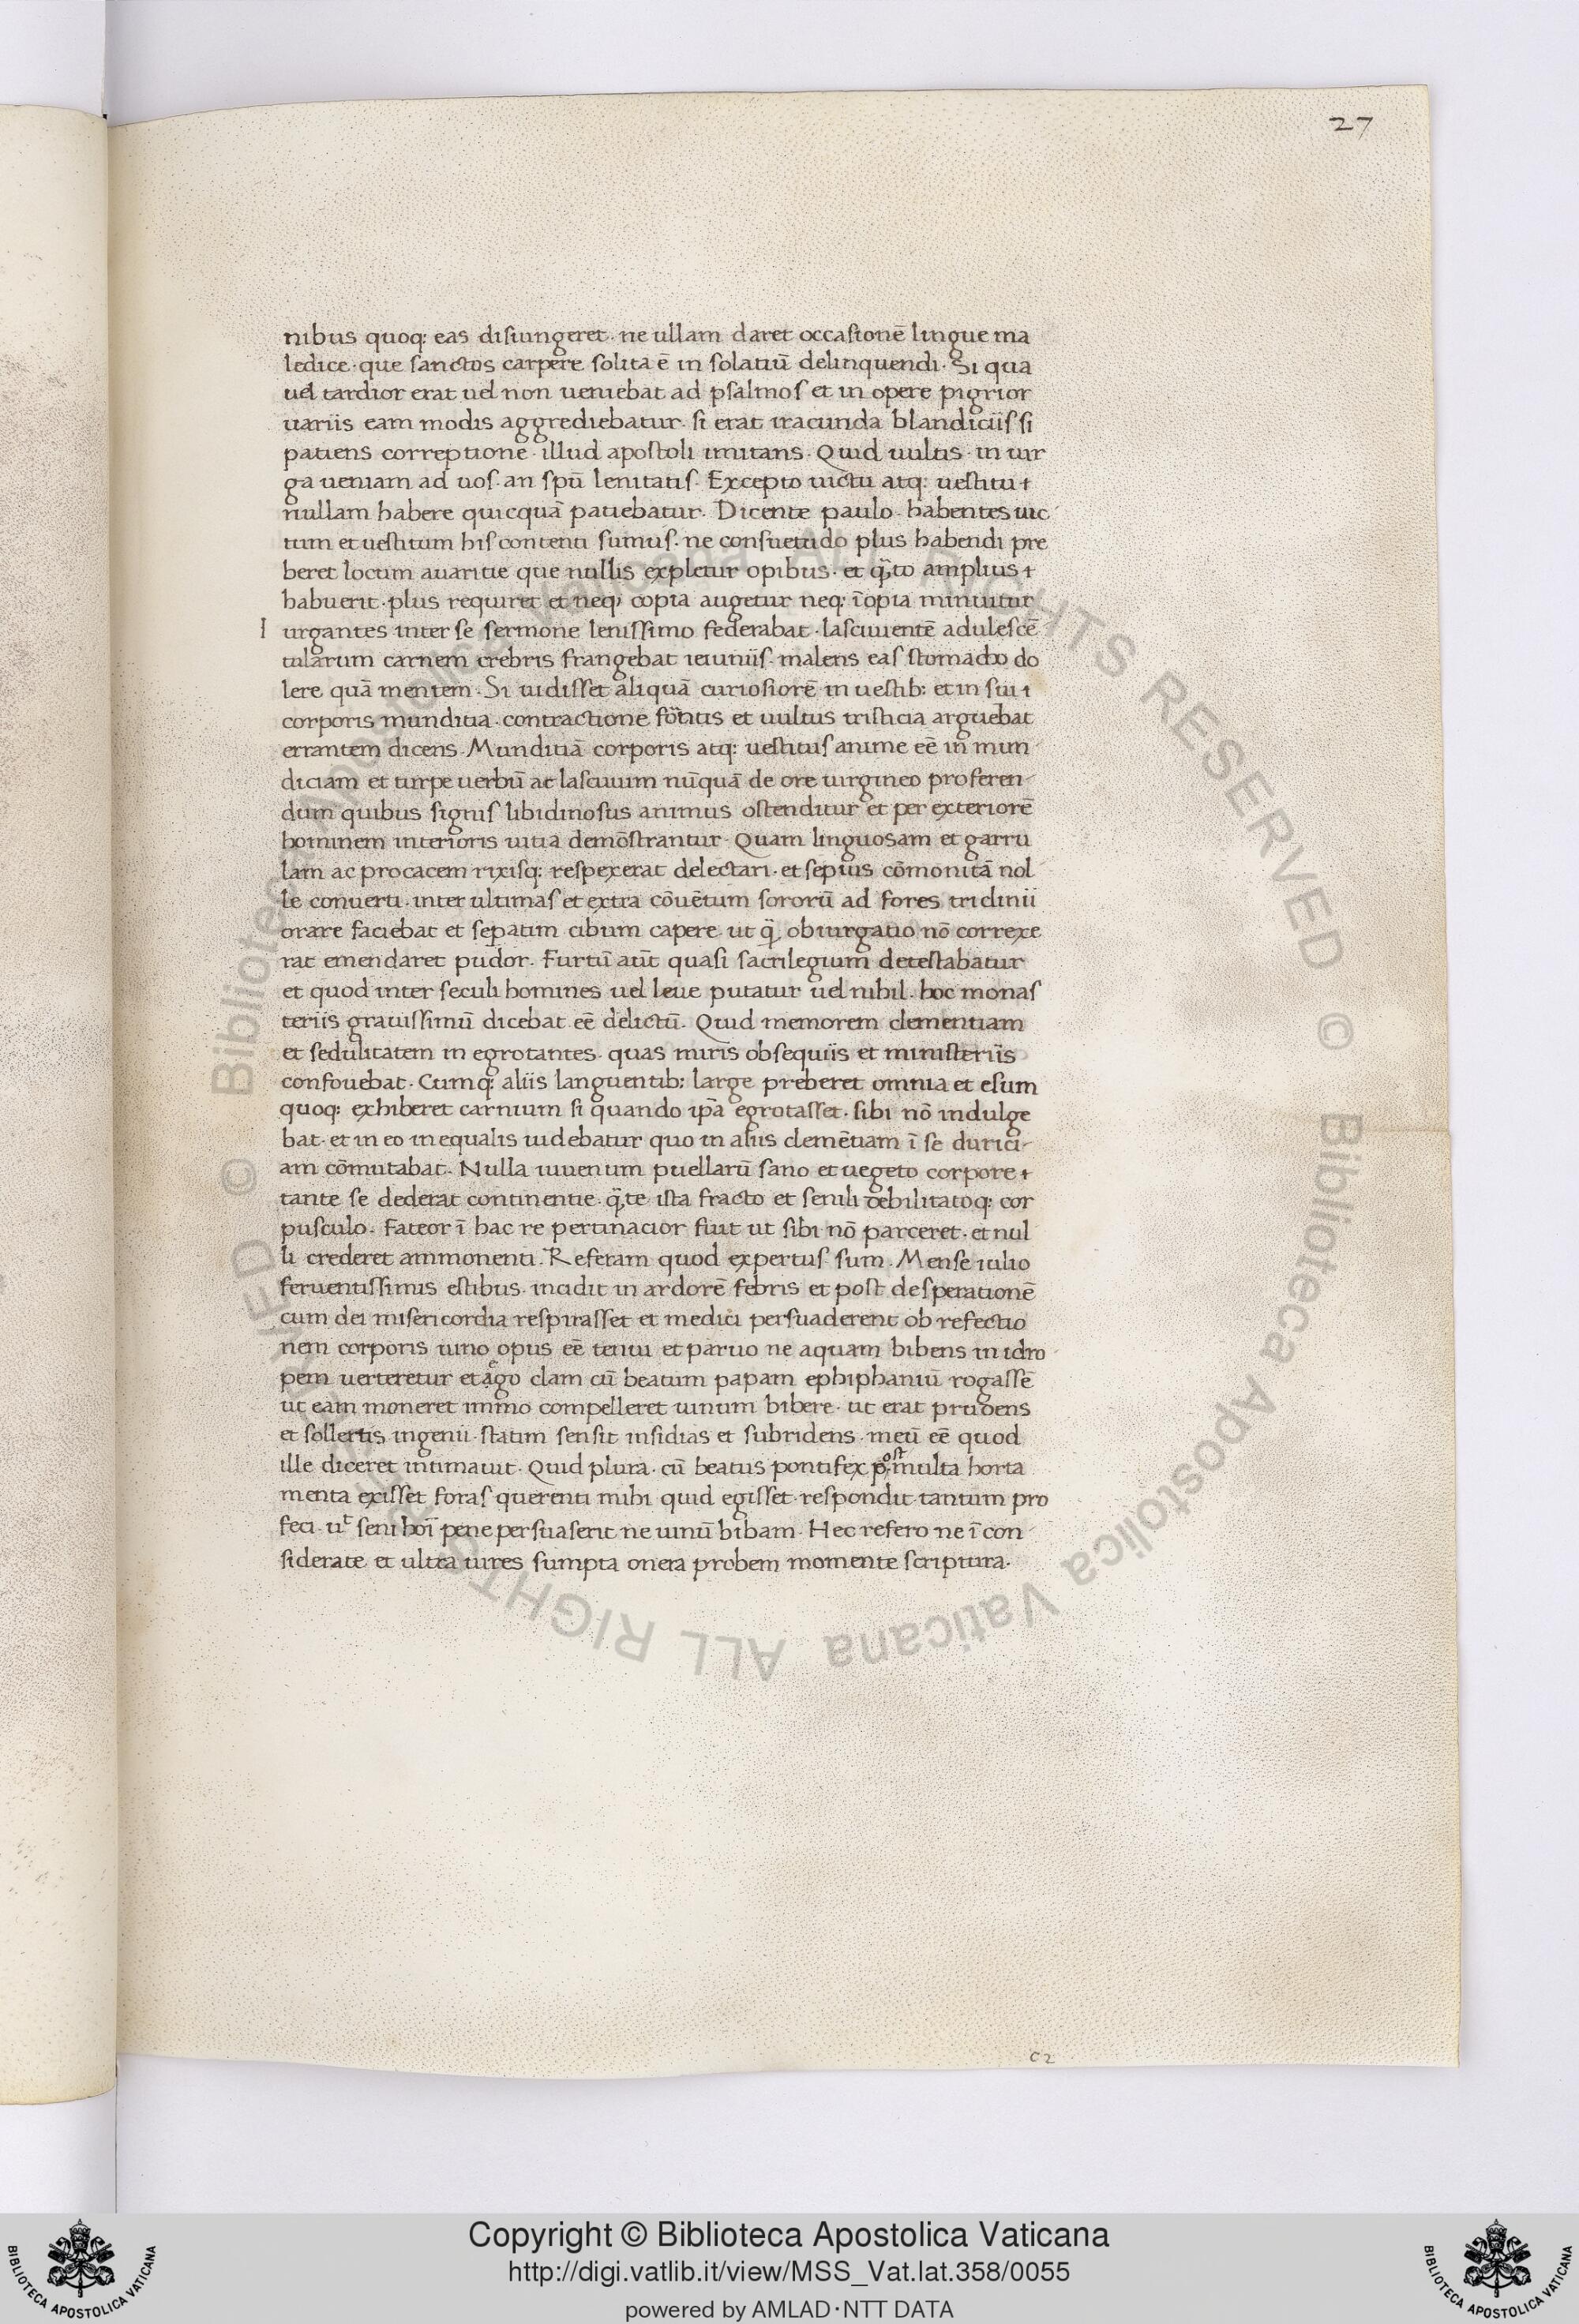 27
nibus quoq: eas disiungeret· ne ullam daret occasionē lingue ma
ledice· que sanctos carpere solita ē in solatiū delinquendi· Si qua
uel tardior erat uel non ueniebat ad psalmos et in opere pigrior
uariis eam modis aggrediebatur· si erat iracunda blandiciis si
patiens correptione· illud apostoli imitans· Quid uultis· in uir
ga ueniam ad uos· an spū lenitatis· Excepto uictu atq: uestitu
nullam habere quicquā patiebatur· Dicente paulo· habentes uic
tum et uestitum his contenti sumus· ne consuetudo plus habendi pre
beret locum auaritie que nullis expletur opibus· et q̄to amplius
habuerit· plus requiret et neq; copia augetur neq: īopia minuitur
I urgantes inter se sermone lenissimo federabat· lasciuientē adulescē
tularum carnem crebris frangebat ieiuniis· malens eas stomacho do
lere quā mentem· Si uidisset aliquā curiosiorē in uestib: et in sui
corporis munditia· contractione frōntis et uultus tristicia arguebat
errantem dicens· Munditiā corporis atq: uestitus anime eē in mun
diciam et turpe uerbū ac lasciuum nūquā de ore uirgineo proferen
dum quibus signis libidinosus animus ostenditur et per exteriorē
hominem interioris uitia demōstrantur· Quam linguosam et garru
lam ac procacem rixisq: respexerat delectari· et sepius cōmonitā nol
le conuerti· inter ultimas et extra cōuētum sororū ad fores triclinii
orare faciebat et sepatim cibum capere· ut q̄ obiurgatio nō correxe
rat emendaret pudor· Furtū aūt quasi sacrilegium detestabatur
et quod inter seculi homines uel leue putatur uel nihil· hoc monas
teriis grauissimū dicebat eē delictū· Quid memorem clementiam
et sedulitatem in egrotantes· quas miris obsequiis et ministeriis
confouebat· Cumq: aliis languentib: large preberet omnia et esum
quoq: exhiberet carnium si quando ipā egrotasset· sibi nō indulge
bat· et in eo inequalis uidebatur quo in aliis clemētiam ī se durici
am cōmutabat· Nulla iuuenum puellarū sano et uegeto corpore
tante se dederat continentie· q̄te ista fracto et senili debilitatoq: cor
pusculo· Fateor ī hac re pertinacior fuit ut sibi nō parceret· et nul
li crederet ammonenti· Referam quod expertus sum· Mense iulio
feruentissimis estibus· incidit in ardorē febris et post desperationē
cum dei misericordia respirasset et medici persuaderent ob refectio
nem corporis uino opus eē tenui et paruo ne aquam bibens in idro
pem uerteretur et ego clam cū beatum papam ephiphaniū rogassē
ut eam moneret immo compelleret uinum bibere· ut erat prudens
et sollertis ingenii· statim sensit insidias et subridens· meū eē quod
ille diceret intimauit· Quid plura· cū beatus pontifex post multa horta
menta exisset foras· querenti mihi quid egisset· respondit tantum pro
feci· ut seni hoī pene persuaserit ne uinū bibam· Hec refero ne ī con
siderate et ultra uires sumpta onera probem momente scriptura·
c 2
© Biblioteca Apostolica Vaticana ALL RIGHTS RESERVED © Biblioteca Apostolica Vaticana ALL RIGHTS RESERVED
Copyright © Biblioteca Apostolica Vaticana
http://digi.vatlib.it/view/MSS_Vat.lat.358/0055
powered by AMLAD·NTT DATA
BIBLIOTECA APOSTOLICA VATICANA
BIBLIOTECA APOSTOLICA VATICANA